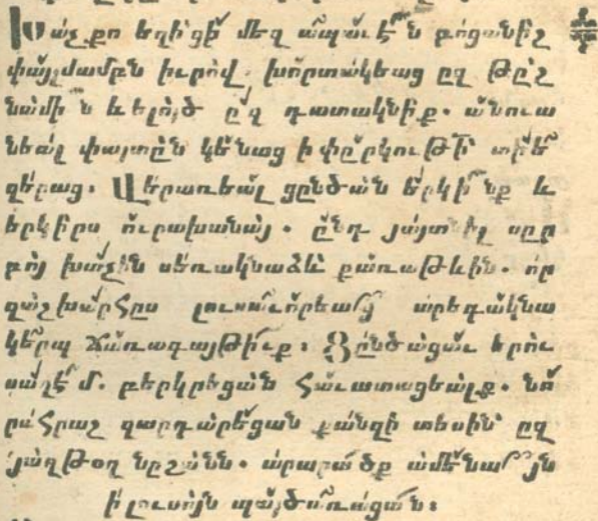 Խաչ քո եղիցի մեզ ապաւէն բոցանիշ
փայլմամբն իւրով. խորտակեաց ըզ թըշ
նամին և ելոյծ ըզ դատակնիք. անուա
նեալ փայտըն կենաց ի փըրկութի տիե
զերաց. Վերառեալ ցընծան երկինք և
երկիրս ուրախանայ. ընդ յայտնիլ սըր
բոյ խաչին սեռակնաձև քառաթևին. որ
զաշխարհըս լուսաւորեաց արեգակնա
կերպ ճառագայթիւք։ Ցընծացաւ երու
սաղէմ. բերկրեցան հաւատացեալք. նո
րահրաշ զարդարեցան քանզի տեսին ըզ
յաղթօղ նըշանն. արարածք ամենայն
ի լուսոյն պայծառացան։